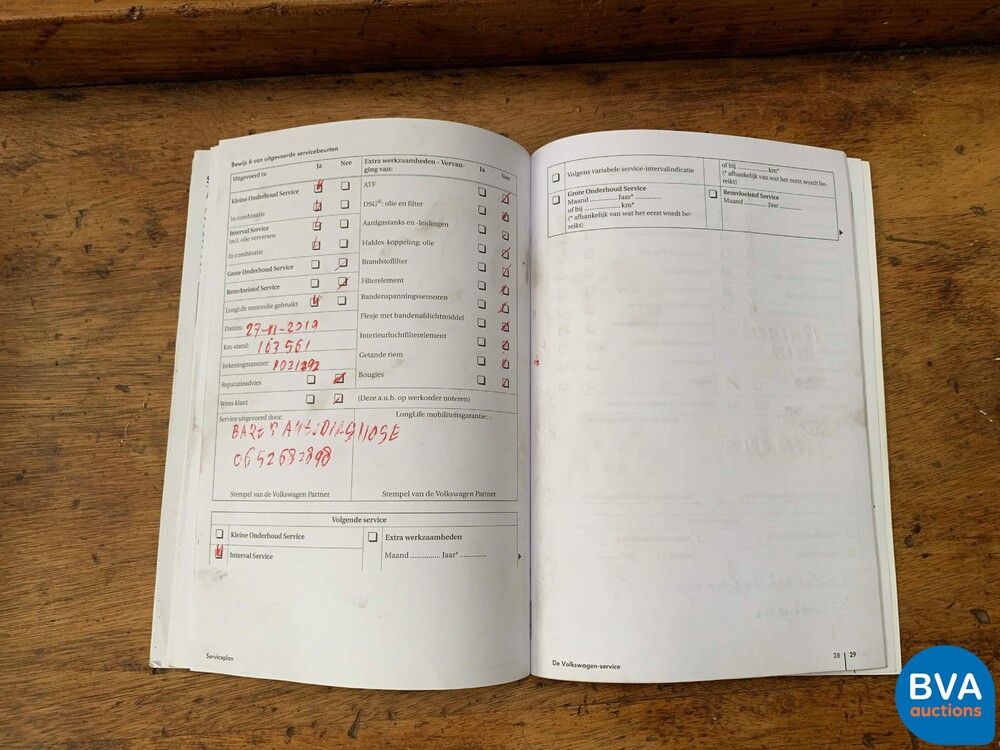 Bewijs 6 van uitgevoerde servicebeurten
Uitgevoerd is: Ja Nee
Kleine Onderhoud Service
In combinatie
Interval Service
incl. olie verversen
In combinatie
Grote Onderhoud Service
Remvloeistof Service
LongLife motorolie gebruikt
Datum: 27-11-2019
Km-stand: 163561
Rekeningnummer:
Reparatieadvies
Wens klant
Extra werkzaamheden - Vervan-
ging van: Ja Nee
ATF
DSG®: olie en filter
Aardgastanks en -leidingen
Haldex-koppeling: olie
Brandstoffilter
Filterelement
Bandenspanningssensoren
Flesje met bandenafdichtmiddel
Interieurluchtfilterelement
Getande riem
Bougies
(Deze a.u.b. op werkorder noteren)
Service uitgevoerd door:
Stempel van de Volkswagen Partner
LongLife mobiliteitsgarantie:
Stempel van de Volkswagen Partner
Volgende service
Kleine Onderhoud Service
Interval Service
Extra werkzaamheden
Maand .............. Jaar* ............
Serviceplan
Volgens variabele service-intervalindicatie
Grote Onderhoud Service
Maand ............ Jaar* ............
of bij ................ km*
(* afhankelijk van wat het eerst wordt be-
reikt)
of bij ............ km*
(* afhankelijk van wat het eerst wordt be-
reikt)
Remvloeistof Service
Maand ............ Jaar ............
De Volkswagen-service
28 29
BVA
auctions